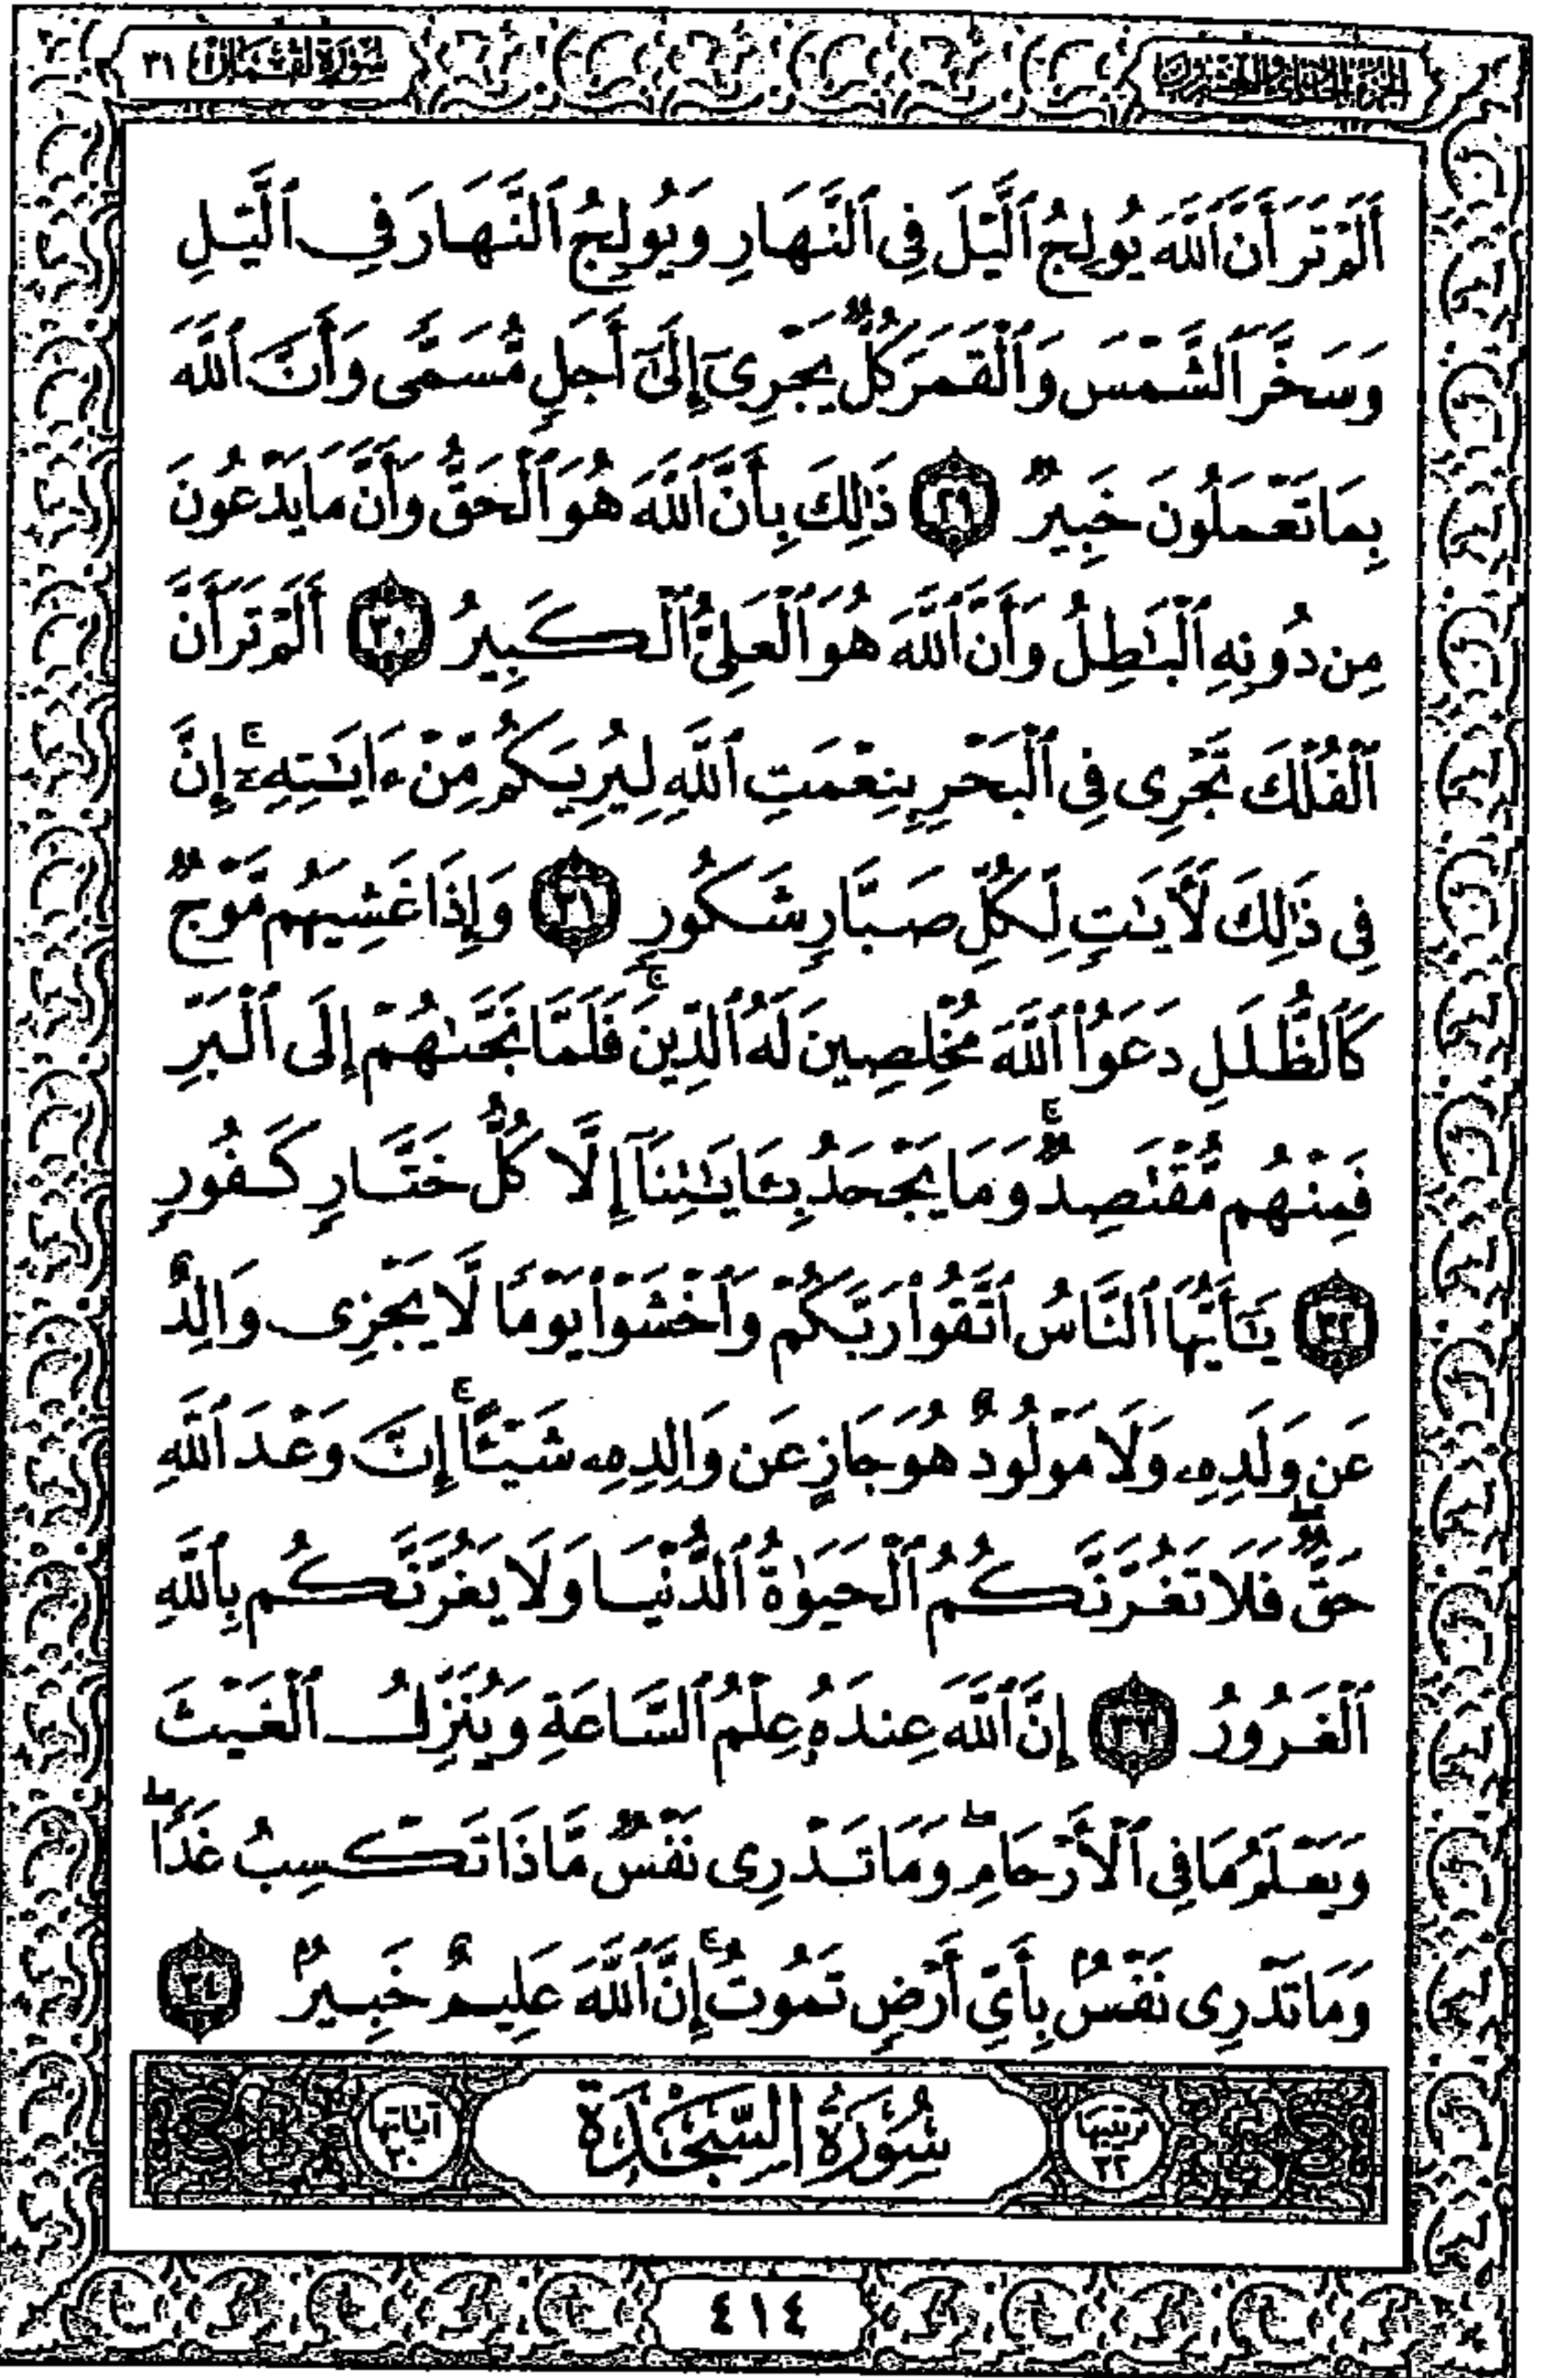 الجزء الحادي والعشرون
سورة لقمان ٣١
أَلَمْ تَرَ أَنَّ ٱللَّهَ يُولِجُ ٱلَّيْلَ فِى ٱلنَّهَارِ وَيُولِجُ ٱلنَّهَارَ فِى ٱلَّيْلِ
وَسَخَّرَ ٱلشَّمْسَ وَٱلْقَمَرَ كُلٌّ يَجْرِىٓ إِلَىٰٓ أَجَلٍ مُّسَمًّى وَأَنَّ ٱللَّهَ
بِمَا تَعْمَلُونَ خَبِيرٌ ٢٩ ذَٰلِكَ بِأَنَّ ٱللَّهَ هُوَ ٱلْحَقُّ وَأَنَّ مَا يَدْعُونَ
مِن دُونِهِ ٱلْبَٰطِلُ وَأَنَّ ٱللَّهَ هُوَ ٱلْعَلِىُّ ٱلْكَبِيرُ ٣٠ أَلَمْ تَرَ أَنَّ
ٱلْفُلْكَ تَجْرِى فِى ٱلْبَحْرِ بِنِعْمَتِ ٱللَّهِ لِيُرِيَكُم مِّنْ ءَايَٰتِهِۦٓ ۚ إِنَّ
فِى ذَٰلِكَ لَأٓيَٰتٍ لِّكُلِّ صَبَّارٍ شَكُورٍ ٣١ وَإِذَا غَشِيَهُم مَّوْجٌ
كَٱلظُّلَلِ دَعَوُا۟ ٱللَّهَ مُخْلِصِينَ لَهُ ٱلدِّينَ ۚ فَلَمَّا نَجَّىٰهُمْ إِلَى ٱلْبَرِّ
فَمِنْهُم مُّقْتَصِدٌ ۚ وَمَا يَجْحَدُ بِـَٔايَٰتِنَآ إِلَّا كُلُّ خَتَّارٍ كَفُورٍ
٣٢ يَٰٓأَيُّهَا ٱلنَّاسُ ٱتَّقُوا۟ رَبَّكُمْ وَٱخْشَوْا۟ يَوْمًا لَّا يَجْزِى وَالِدٌ
عَن وَلَدِهِۦ وَلَا مَوْلُودٌ هُوَ جَازٍ عَن وَالِدِهِۦ شَيْـًٔا ۚ إِنَّ وَعْدَ ٱللَّهِ
حَقٌّ ۖ فَلَا تَغُرَّنَّكُمُ ٱلْحَيَوٰةُ ٱلدُّنْيَا وَلَا يَغُرَّنَّكُم بِٱللَّهِ
ٱلْغَرُورُ ٣٣ إِنَّ ٱللَّهَ عِندَهُۥ عِلْمُ ٱلسَّاعَةِ وَيُنَزِّلُ ٱلْغَيْثَ
وَيَعْلَمُ مَا فِى ٱلْأَرْحَامِ ۖ وَمَا تَدْرِى نَفْسٌ مَّاذَا تَكْسِبُ غَدًا ۖ
وَمَا تَدْرِى نَفْسٌۢ بِأَىِّ أَرْضٍ تَمُوتُ ۚ إِنَّ ٱللَّهَ عَلِيمٌ خَبِيرٌۢ ٣٤
ترتيبها ٣٢ سُورَةُ السَّجْدَةِ آياتها ٣٠
٤١٤